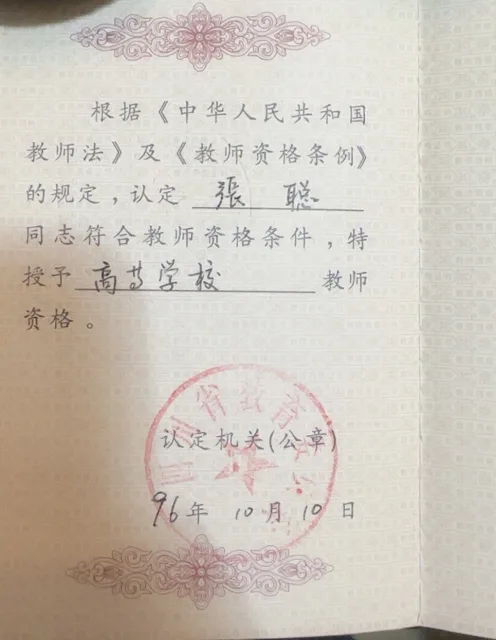 根据《中华人民共和国
教师法》及《教师资格条例》
的规定，认定 張 聪
同志符合教师资格条件，特
授予 高等学校 教师
资格。
四川省教育委员会
认定机关(公章)
96年 10月 10日